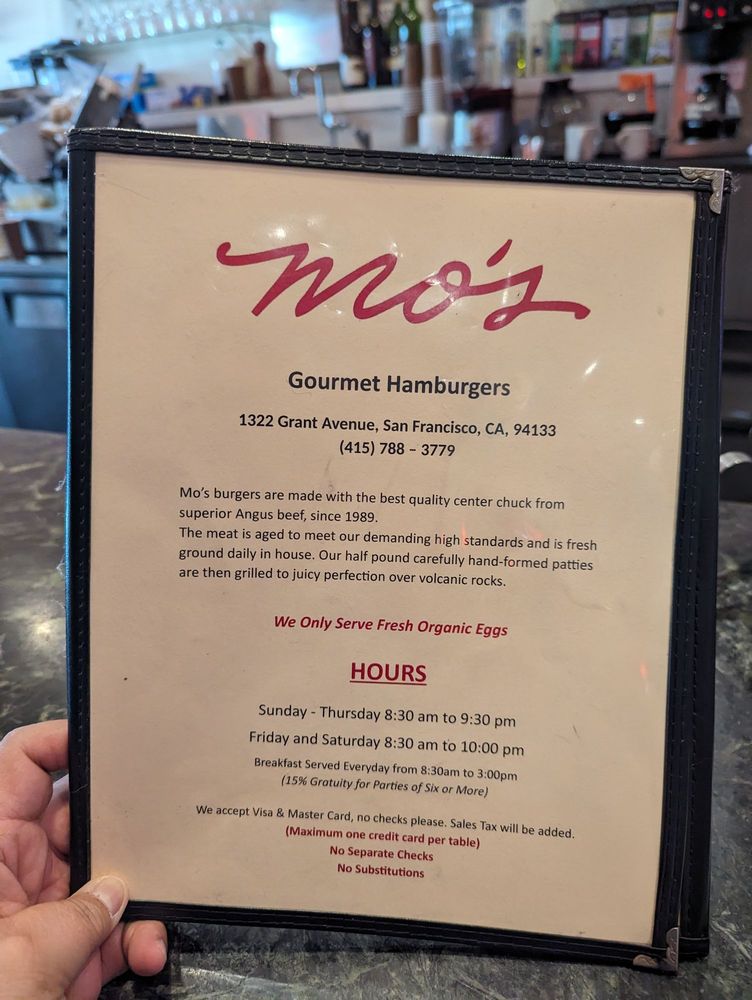 mo's
Gourmet Hamburgers
1322 Grant Avenue, San Francisco, CA, 94133
(415) 788 – 3779
Mo's burgers are made with the best quality center chuck from
superior Angus beef, since 1989.
The meat is aged to meet our demanding high standards and is fresh
ground daily in house. Our half pound carefully hand-formed patties
are then grilled to juicy perfection over volcanic rocks.
We Only Serve Fresh Organic Eggs
HOURS
Sunday - Thursday 8:30 am to 9:30 pm
Friday and Saturday 8:30 am to 10:00 pm
Breakfast Served Everyday from 8:30am to 3:00pm
(15% Gratuity for Parties of Six or More)
We accept Visa & Master Card, no checks please. Sales Tax will be added.
(Maximum one credit card per table)
No Separate Checks
No Substitutions